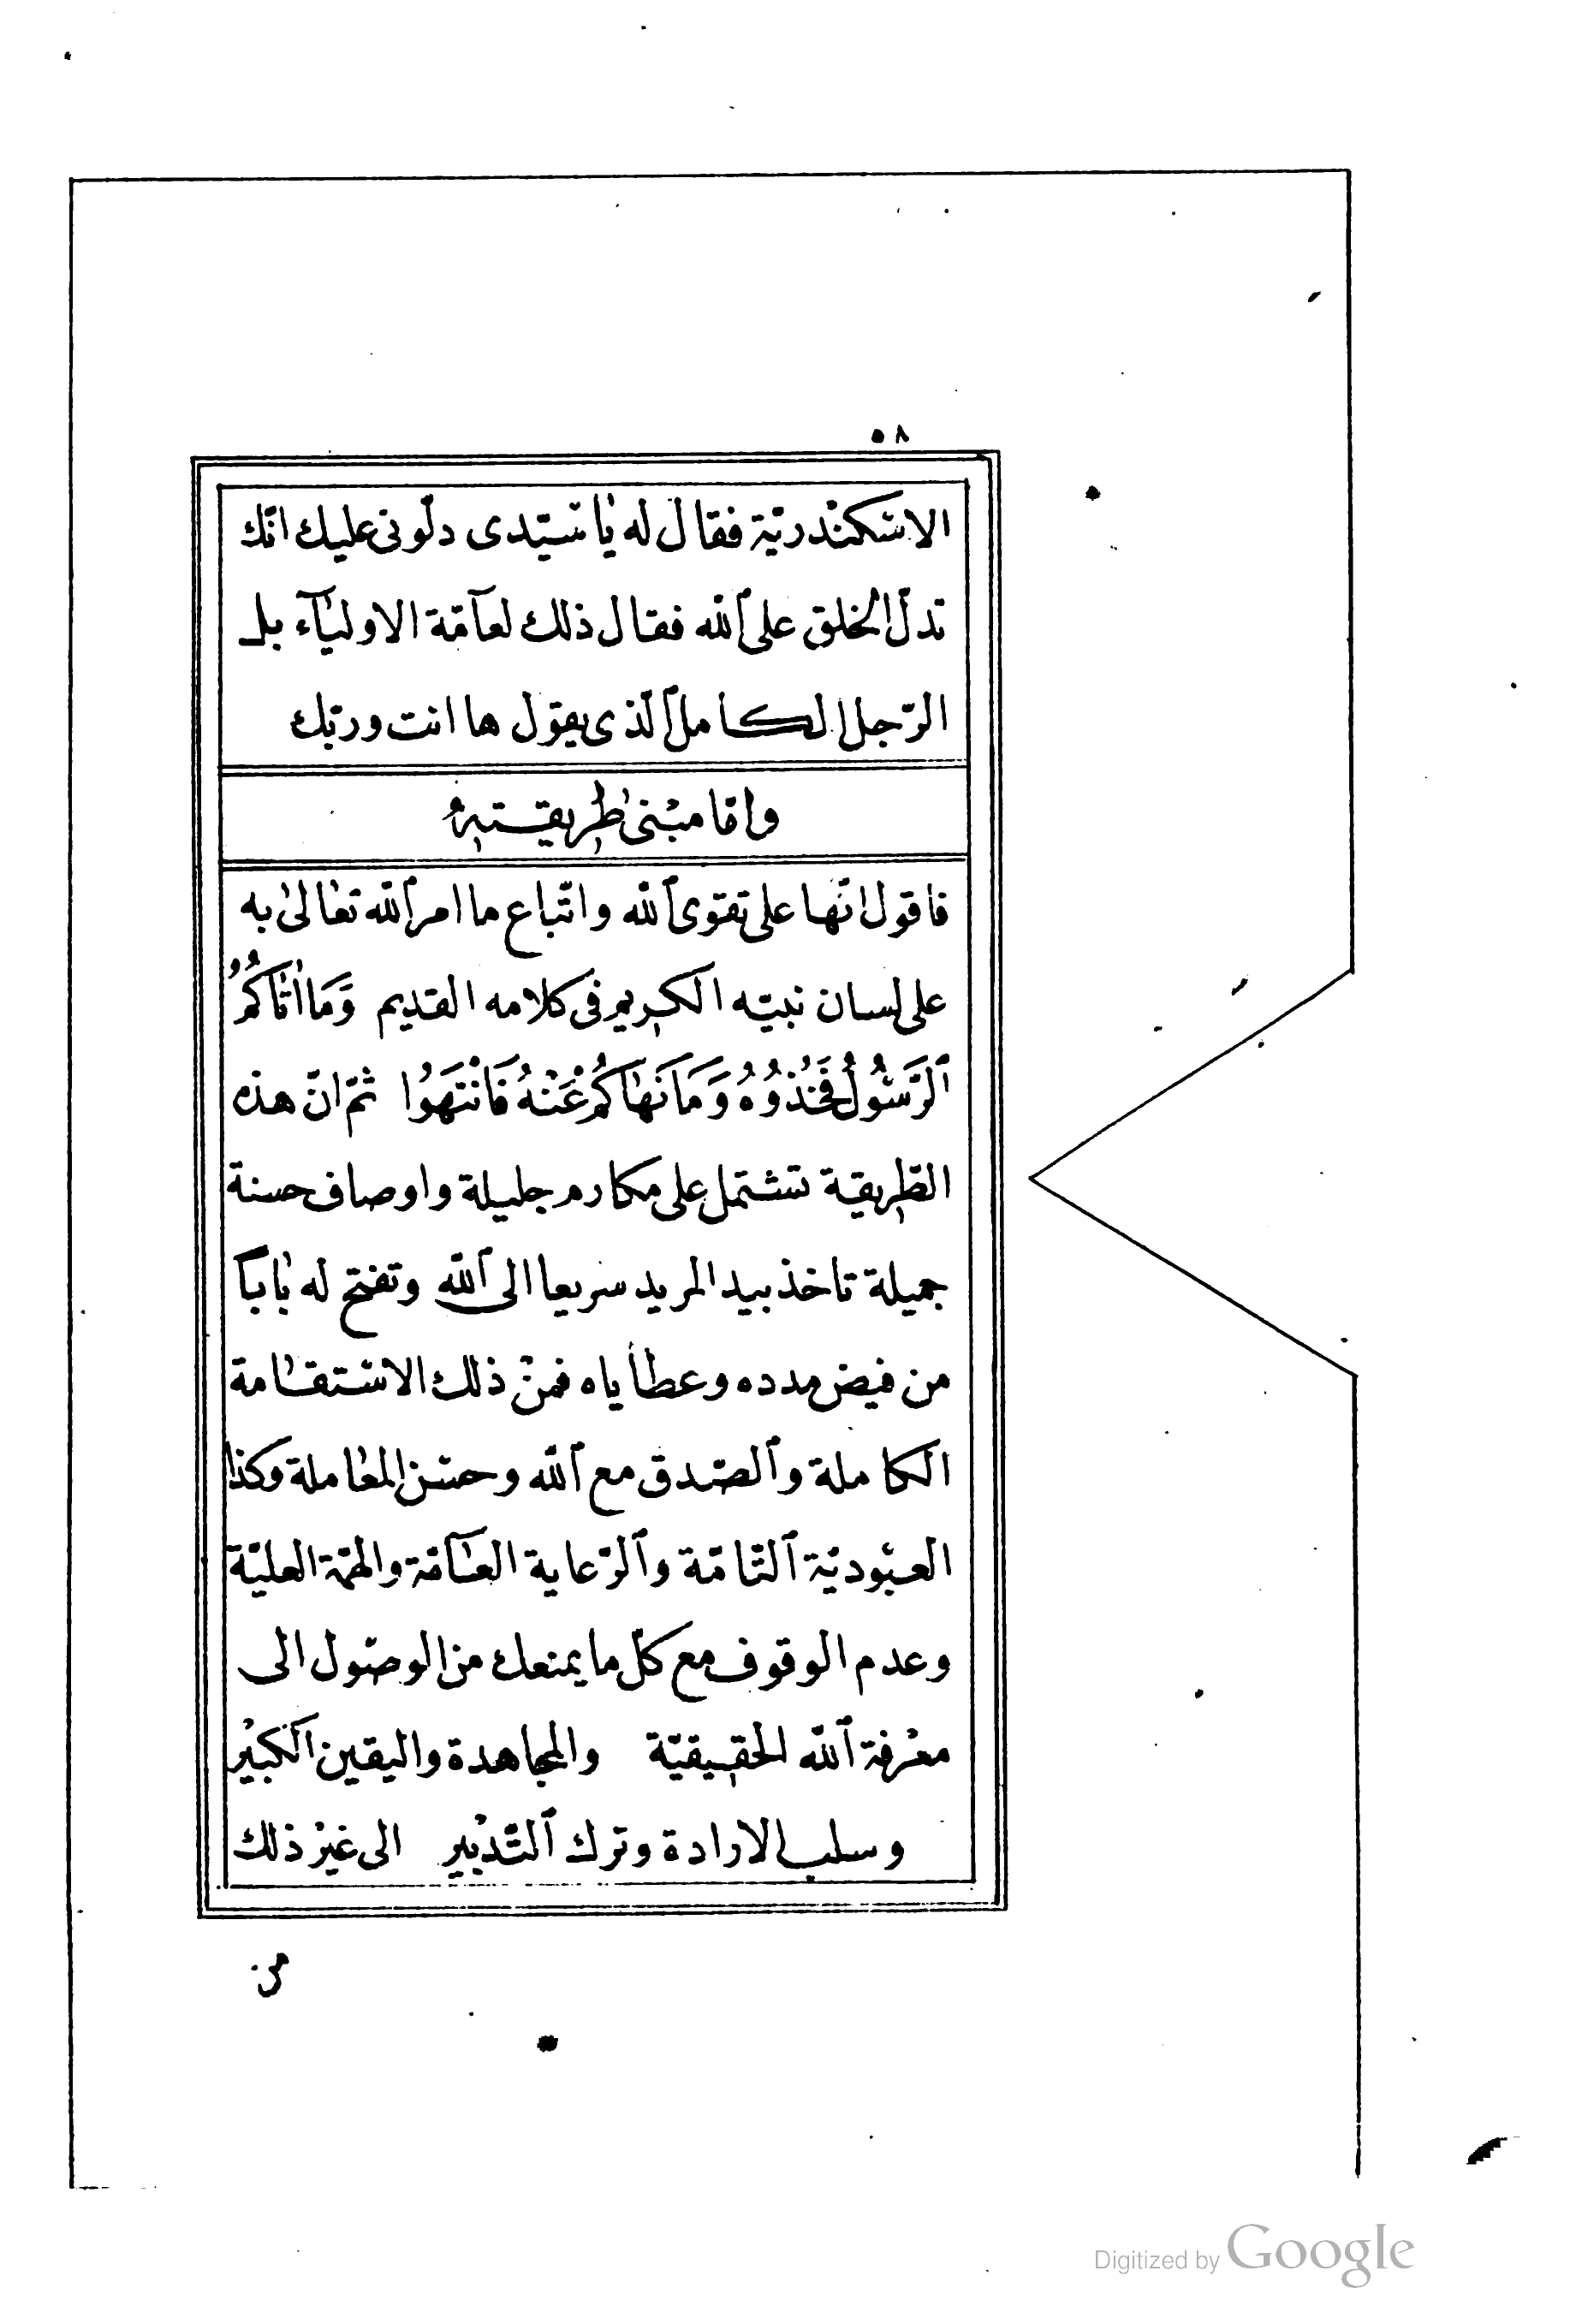 ٥٨
الاسكندريّة فقال له يا سيّدى دلّونى عليك انّك
تدلّ الخلق على ٱللّه فقال ذلك لعآمّة الاوليآء بل
الرّجل الكامل ٱلّذى يقول ها انت وربّك
وامّا مبنى طريقته
فاقول انّها على تقوى ٱللّه واتّباع ما امر ٱللّه تعالى به
على لسان نبيّه الكريم فى كلامه القديم وَمَا اٰتَاكُمُ
ٱلرَّسُولُ فَخُذُوهُ وَمَا نَهَاكُمْ عَنْهُ فَانْتَهَوُا ثمّ انّ هذه
الطّريقة تشتمل على مكارم جليلة واوصاف حسنة
جميلة تاخذ بيد المريد سريعا الى ٱللّه وتفتح له باباً
من فيض مدده وعطاياه فمن ذلك الاستقامة
الكاملة وٱلصّدق مع ٱللّه وحسن المعاملة وكذا
العبوديّة ٱلتّامّة وٱلرّعاية العآمّة والهمّة العليّة
وعدم الوقوف مع كلّ ما يمنعك من الوصول الى
معرفة ٱللّه الحقيقيّة والمجاهدة واليقين الكبير
وسلب الارادة وترك ٱلتّدبير الى غير ذلك
من
Digitized by Google